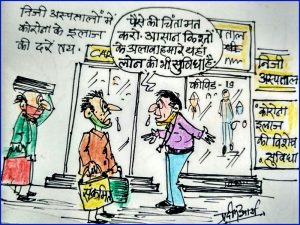 निजी अस्पतालों में
कोरोना के इलाज
की दरें तय.
पैसे की चिंता मत
करो. आसान किश्तों
के अलावा हमारे यहां
लोन की भी सुविधा है.
ताल
कोविड-19
निजी
अस्पताल
कोरोना
इलाज
की विशेष
सुविधा
संक्रमित